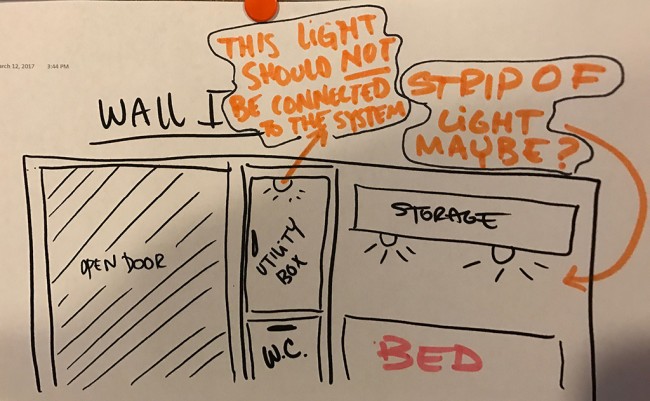 rch 12, 2017 3:44 PM
WALL I
THIS LIGHT
SHOULD NOT
BE CONNECTED
TO THE SYSTEM
STRIP OF
LIGHT
MAYBE?
OPEN DOOR
UTILITY
BOX
W.C.
STORAGE
BED